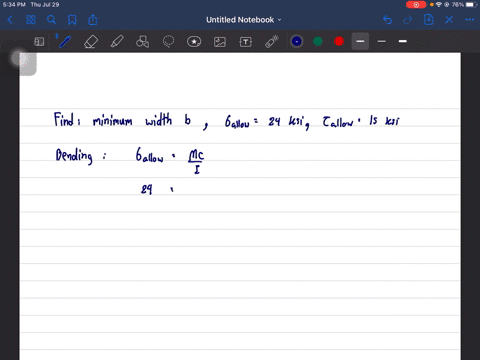 5:34 PM Thu Jul 29
76%
Untitled Notebook
Find: minimum width b , σallow = 24 ksi, τallow = 15 ksi
Bending : σallow = Mc
I
24 =